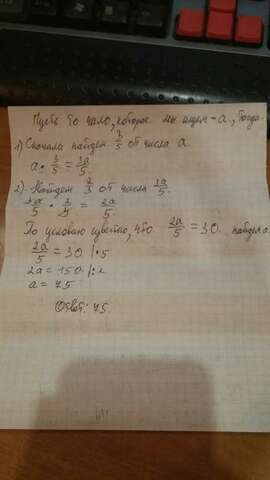 Пусть то число, которое мы ищем - a, тогда
1) Сначала найдем 3/5 от числа a
a · 3/5 = 3a/5
2) Найдем 2/3 от числа 3a/5.
3a/5 · 2/3 = 2a/5
По условию известно, что 2a/5 = 30. найдем a
2a/5 = 30 |·5
2a = 150 |:2
a = 75
Ответ: 75.